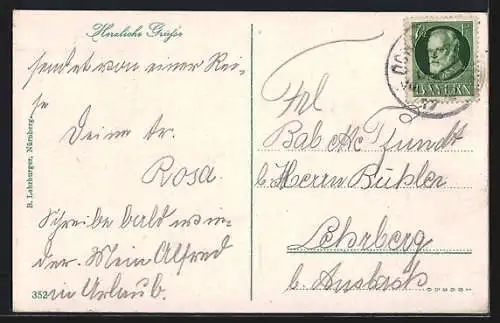 Herzliche Grüße
sendet von einer Rei-
se
Deine tr.
Rosa.
Schreibe bald wie-
der. Mein Alfred
in Urlaub.
352
B. Lehrburger, Nürnberg.
BAYERN
Frl
Bab
b. Herrn Bühler
Lehrberg
b. Ansbach